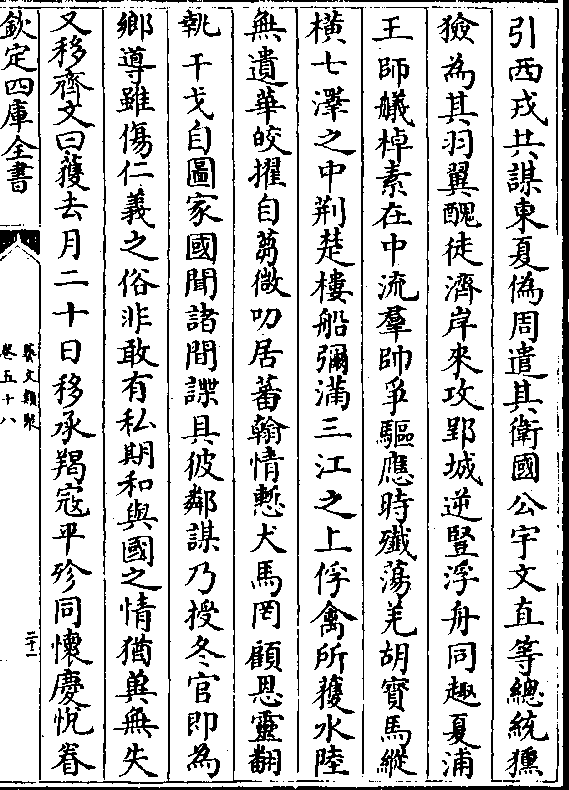 引西戎共謀東夏偽周遣其衛國公宇文直等總統獯
獫為其羽翼醜徒濟岸來攻郢城逆豎浮舟同趣夏浦
王師艤棹素在中流羣帥爭驅應時殲蕩羌胡寳馬縱
橫七澤之中荆楚樓船彌滿三江之上俘禽所獲水陸
無遺華皎擢自芻微叨居蕃翰情慙犬馬罔顧恩靈翻
執干戈自圖家國聞諸間諜具彼鄰謀乃授冬官即為
鄉導雖傷仁義之俗非敢有私期和與國之情猶兾無失
又移齊文曰獲去月二十日移承羯寇平殄同懷慶悅眷
欽定四庫全書
藝文類聚
卷五十八
二十二